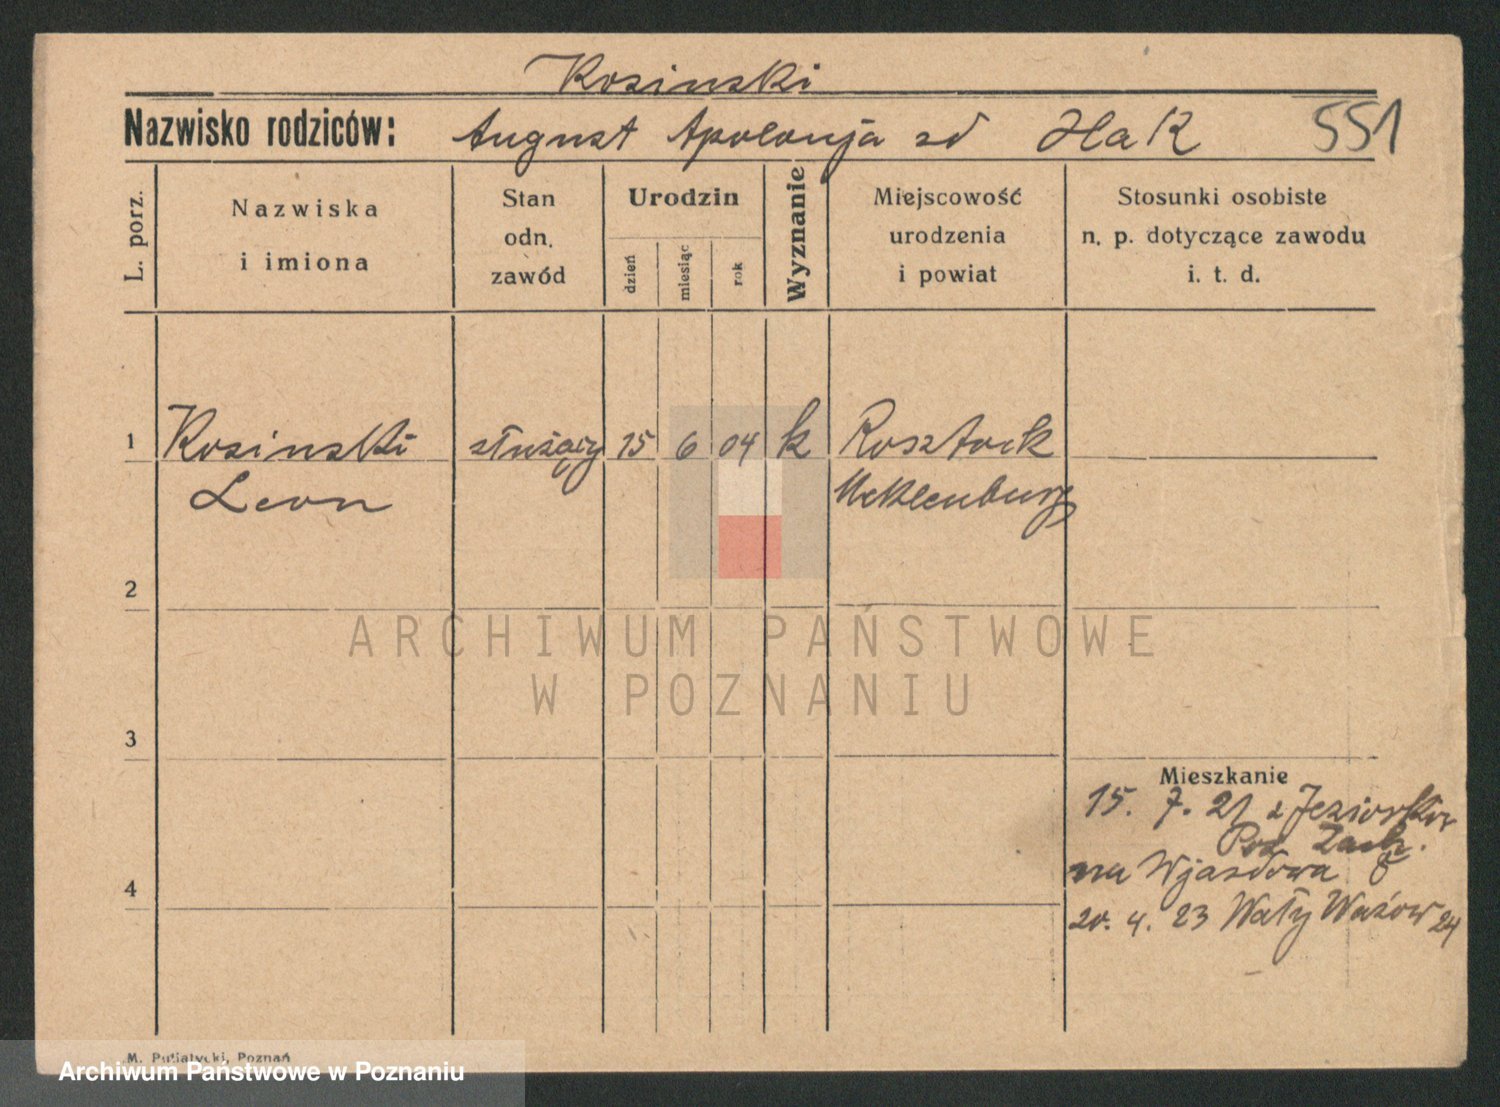 Kosinski
Nazwisko rodziców: August Apolonja zd Hak 551
L. porz.
Nazwiska
i imiona
Stan
odn.
zawód
Urodzin
dzień
miesiąc
rok
Wyznanie
Miejscowość
urodzenia
i powiat
Stosunki osobiste
n. p. dotyczące zawodu
i. t. d.
1 Kosinski służący 15 6 04 k Rosztock
Leon Meklenburg
2
ARCHIWUM PAŃSTWOWE
W POZNANIU
3
Mieszkanie
15. 7. 21 z
Poz Zach.
na Wjazdowa
4
20. 4. 23 Wały Wazów 24
M. Putiatycki, Poznań
Archiwum Państwowe w Poznaniu